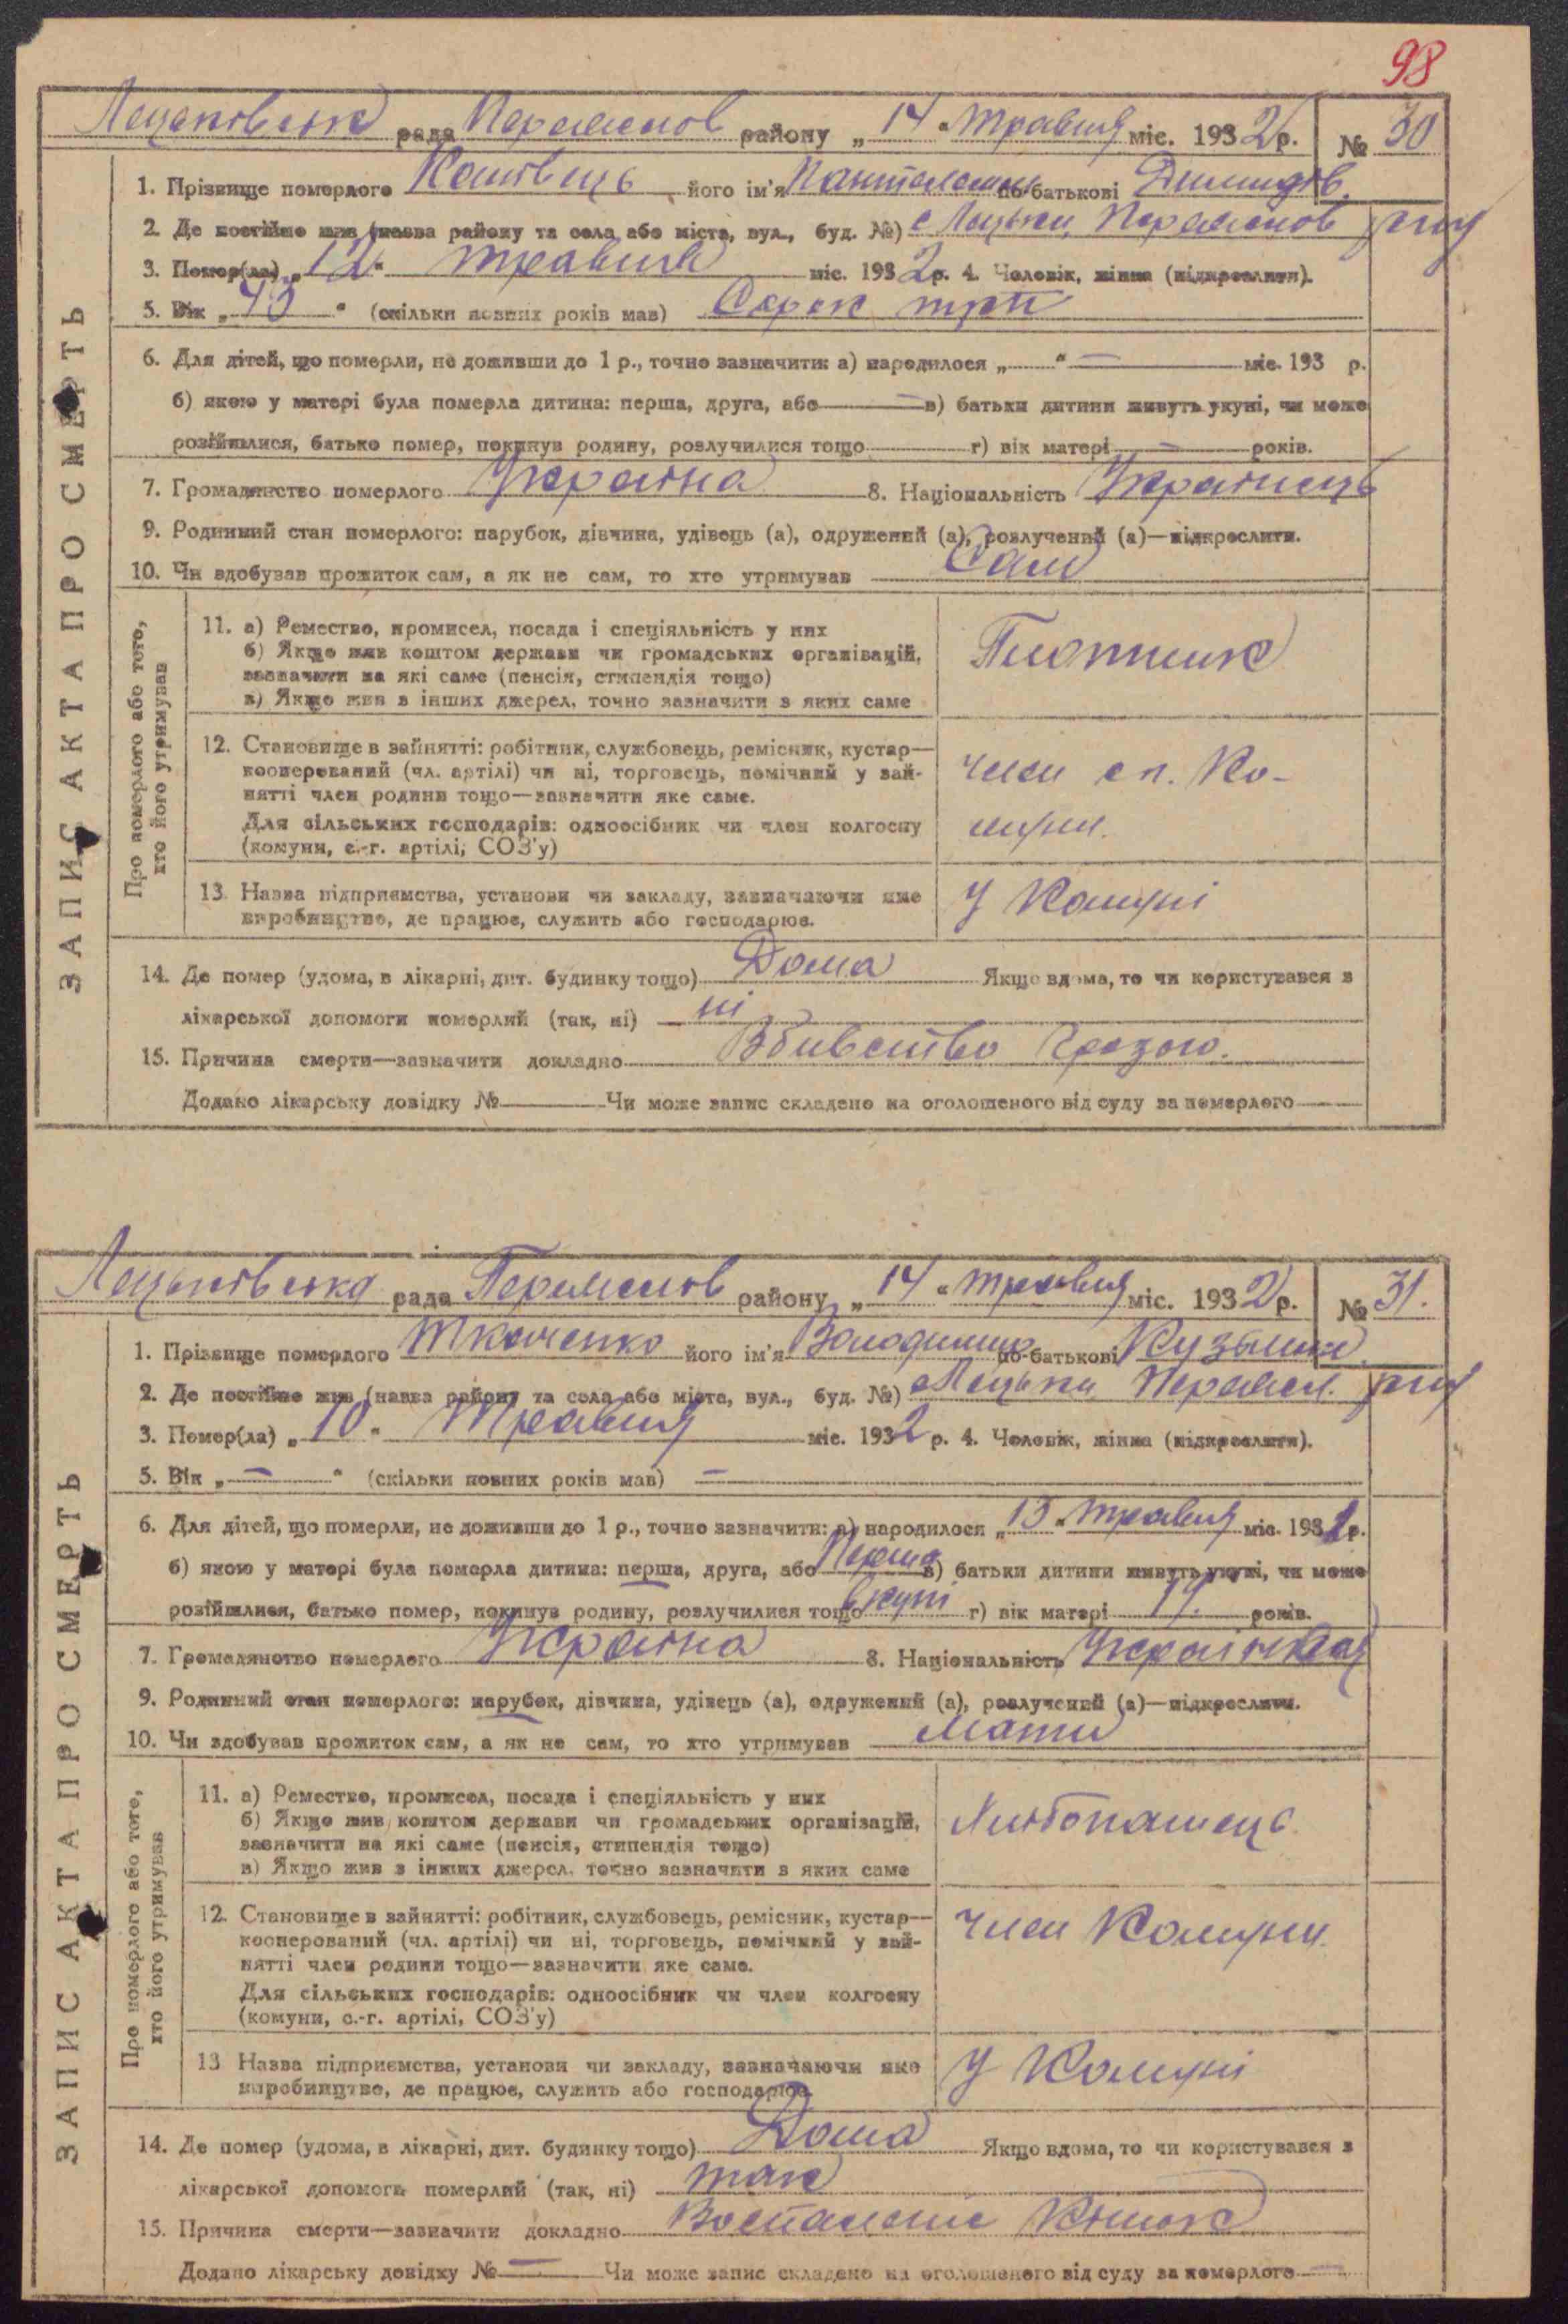 98
Лецьківська рада Переяслов району „14“ травня міс. 1932 р. № 30
1. Прізвище померлого його ім'я по-батькові
2. Де постійне жив (назва району та села або міста, вул., буд. №) с Лецьки Переяслов р-ну
3. Помер(ла) „12“ травня міс. 1932 р. 4. Чоловік, жінка (підкреслити).
5. Вік „43“ (скільки повних років мав) Сорок три
6. Для дітей, що померли, не доживши до 1 р., точно зазначити: а) народилося „ “ — міс. 193 р.
б) якою у матері була померла дитина: перша, друга, або — в) батьки дитини живуть укупі, чи може
розійшлися, батько помер, покинув родину, розлучилися тощо г) вік матері — років.
7. Громадянство померлого Україна 8. Національність Українець
9. Родинний стан померлого: парубок, дівчина, удівець (а), одружений (а), розлучений (а)—підкреслити.
10. Чи здобував прожиток сам, а як не сам, то хто утримував Сам
ЗАПИС АКТА ПРО СМЕРТЬ
Про померлого або того,
хто його утримував
11. а) Ремество, промисел, посада і спеціяльність у них
б) Якщо жив коштом держави чи громадських організацій,
зазначити на які саме (пенсія, стипендія тощо)
в) Якщо жив з інших джерел, точно зазначити з яких саме
Плотник
12. Становище в зайнятті: робітник, службовець, ремісник, кустар—
кооперований (чл. артілі) чи ні, торговець, помічний у зай-
нятті член родини тощо—зазначити яке саме.
Для сільських господарів: одноосібник чи член колгоспу
(комуни, с.-г. артілі, СОЗ'у)
член с п. Ко-
муни.
13. Назва підприємства, установи чи закладу, зазначаючи яке
виробництво, де працює, служить або господарює.
У Комуні
14. Де помер (удома, в лікарні, дит. будинку тощо) Дома Якщо вдома, то чи користувався з
лікарської допомоги померлий (так, ні) ні
15. Причина смерти—зазначити докладно Вбивство Грозою.
Додано лікарську довідку № Чи може запис складено на оголошеного від суду за померлого
Лецьківська рада Переяслов району „14“ травня міс. 1932 р. № 31.
1. Прізвище померлого Ткаченко його ім'я Володимир по-батькові Кузьмич
2. Де постійне жив (назва району та села або міста, вул., буд. №) с Лецьки Переясл. р-ну
3. Помер(ла) „10“ Травня міс. 1932 р. 4. Чоловік, жінка (підкреслити).
5. Вік „—“ (скільки повних років мав) —
6. Для дітей, що померли, не доживши до 1 р., точно зазначити: а) народилося травня міс. 1932 р.
б) якою у матері була померла дитина: перша, друга, або Перша в) батьки дитини живуть укупі, чи може
розійшлися, батько помер, покинув родину, розлучилися тощо Вкупі г) вік матері років.
7. Громадянство померлого Україна 8. Національність
9. Родинний стан померлого: парубок, дівчина, удівець (а), одружений (а), розлучений (а)—підкреслити.
10. Чи здобував прожиток сам, а як не сам, то хто утримував Мати
ЗАПИС АКТА ПРО СМЕРТЬ
Про померлого або того,
хто його утримував
11. а) Ремество, промисел, посада і спеціяльність у них
б) Якщо жив коштом держави чи громадських організацій,
зазначити на які саме (пенсія, стипендія тощо)
в) Якщо жив з інших джерел, точно зазначити з яких саме
Хлібопашець
12. Становище в зайнятті: робітник, службовець, ремісник, кустар—
кооперований (чл. артілі) чи ні, торговець, помічний у зай-
нятті член родини тощо—зазначити яке саме.
Для сільських господарів: одноосібник чи член колгоспу
(комуни, с.-г. артілі, СОЗ'у)
член Комуни.
13 Назва підприємства, установи чи закладу, зазначаючи яке
виробництво, де працює, служить або господарює.
У Комуні
14. Де помер (удома, в лікарні, дит. будинку тощо) Дома Якщо вдома, то чи користувався з
лікарської допомоги померлий (так, ні) так
15. Причина смерти—зазначити докладно Воспаленіє Кишок
Додано лікарську довідку № — Чи може запис складено на оголошеного від суду за померлого —